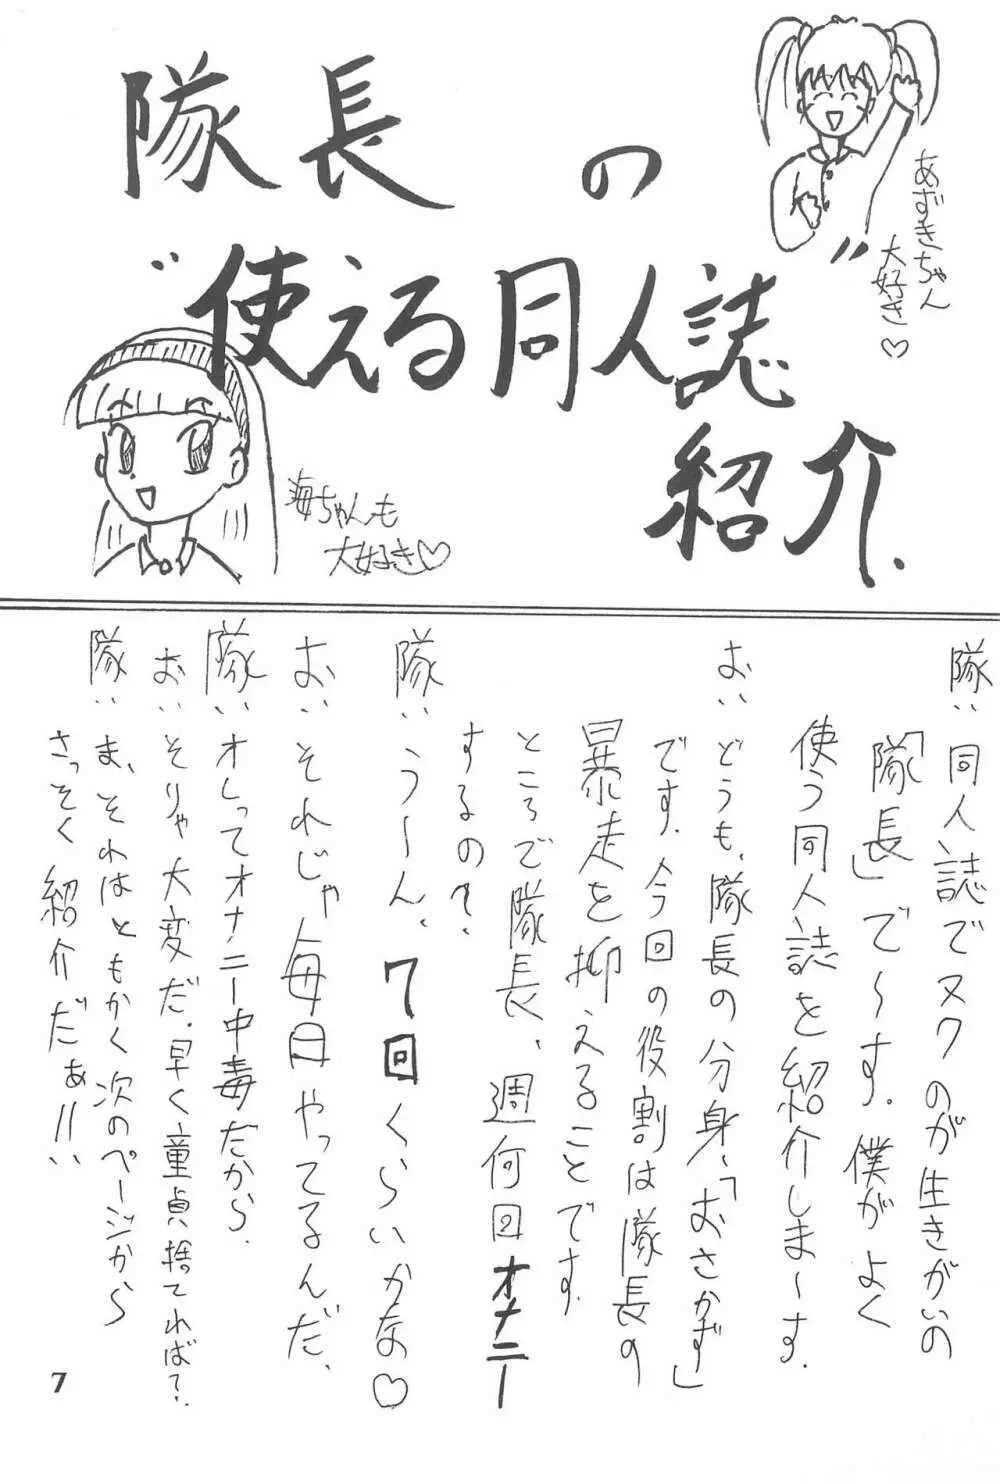 隊長の
"使える同人誌"
紹介.
あずきちゃん
大好き♡
海ちゃんも
大好き♡
隊:同人誌でヌクのが生きがいの
「隊長」で〜す.僕がよく
使う同人誌を紹介しま〜す.
お:どうも、隊長の分身、「おさかず」
です.今回の役割は隊長の
暴走を抑えることです.
ところで隊長、週何回オナニー
するの?
隊:う〜ん、7回くらいかな♡
お:それじゃ毎日やってるんだ、
隊:オレってオナニー中毒だから.
お:そりゃ大変だ.早く童貞捨てれば?
隊:ま、それはともかく次のページから
さっそく紹介だぁ!!
7